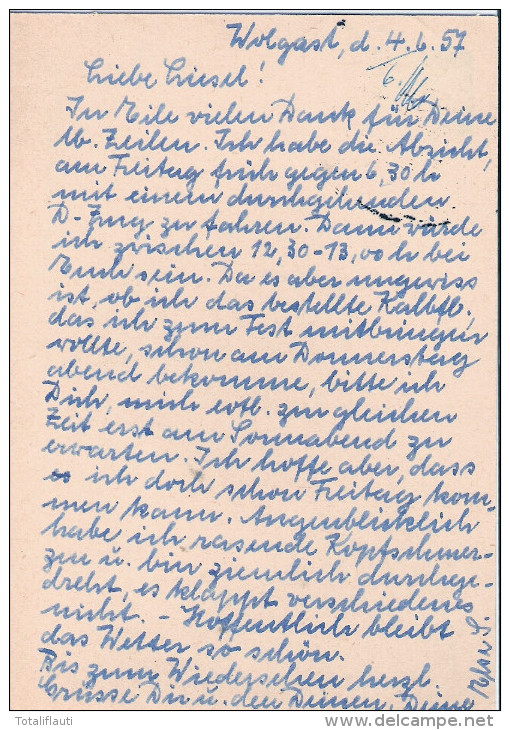 Wolgast, d. 4.6.57
Liebe Liesel!
In Eile vielen Dank für Deine
lb. Zeilen. Ich habe die Absicht,
am Freitag früh gegen 6,30 h
mit einem durchgehenden
D-Zug zu fahren. Dann würde
ich zwischen 12,30-13,00 h bei
Euch sein. Da es aber ungewiss
ist, ob ich das bestellte Kalbfl.,
das ich zum Fest mitbringen
wollte, schon am Donnerstag
abend bekomme, bitte ich
Dich, mich evtl. zur gleichen
Zeit erst am Sonnabend zu
erwarten. Ich hoffe aber, dass
ich doch schon Freitag kom-
men kann. Augenblicklich
habe ich rasende Kopfschmer-
zen u. bin ziemlich durchge-
dreht, es klappt verschiedenes
nicht. - Hoffentlich bleibt
das Wetter so schön.
Bis zum Wiedersehen herzl.
Grüsse Dir u. den Deinen, Deine
Totaliflauti
www.delcampe.net